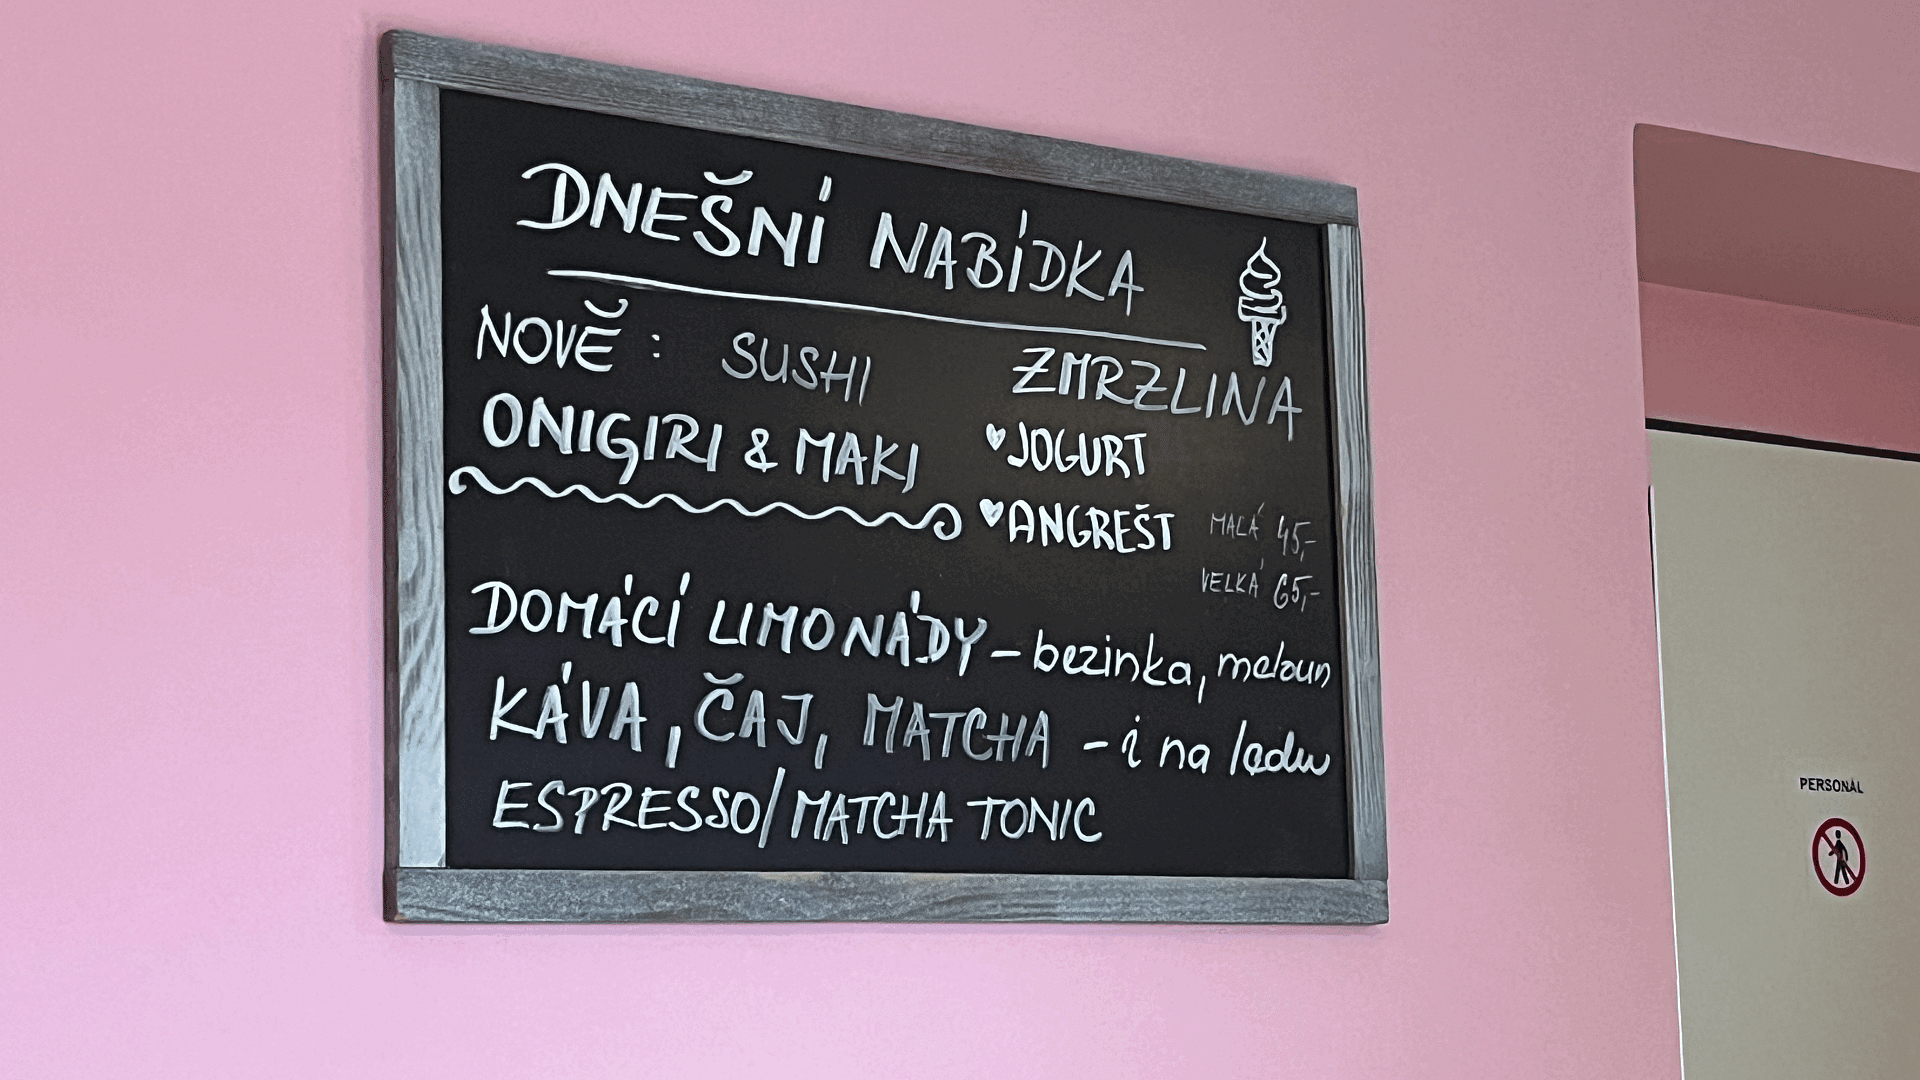 DNEŠNÍ NABÍDKA
NOVĚ : SUSHI
ONIGIRI & MAKI
ZMRZLINA
JOGURT
ANGREŠT
MALÁ 45,-
VELKÁ 65,-
DOMÁCÍ LIMONÁDY – bezinka, meloun
KÁVA, ČAJ, MATCHA – i na ledu
ESPRESSO/MATCHA TONIC
PERSONÁL